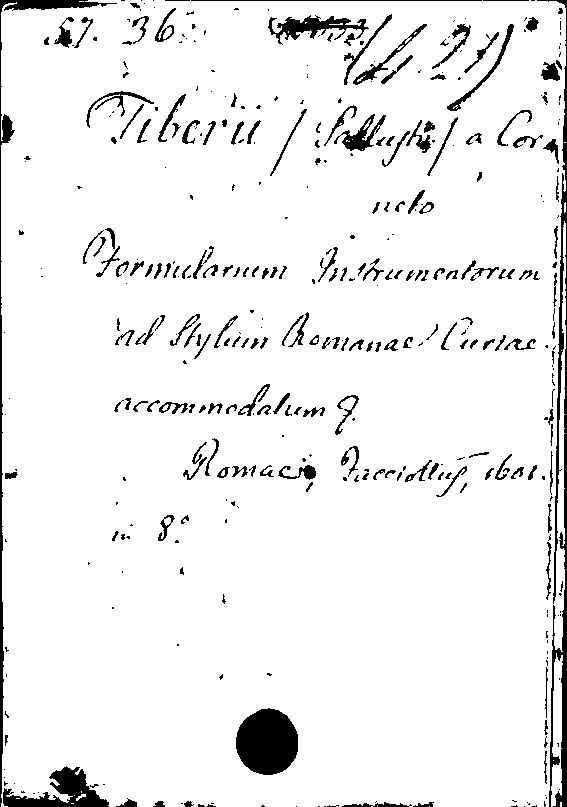 57. 36. (4. 21)
Tiberii / Sallustii / a Cor-
neto
Formularium Instrumentorum
ad Stylum Romanae Curiae
accommodatum
Romae, Facciottus, 1601.
in 8º